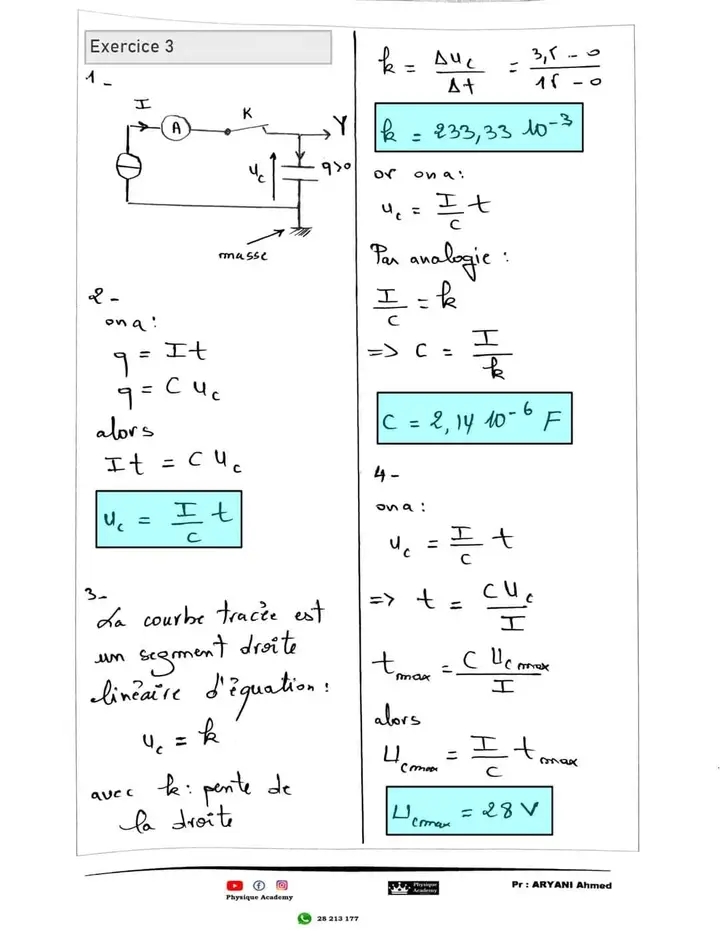 Exercice 3
1-
I
A
K
Y
u_c
q>0
masse
2-
on a:
q = It
q = C u_c
alors
It = C u_c
u_c = I/C t
3-
La courbe tracée est
un segment droite
linéaire d'équation:
u_c = k
avec k: pente de
la droite
k = Δu_c/Δt = 3,5-0/15-0
k = 233,33 10^-3
or on a:
u_c = I/C t
Par analogie:
I/C = k
=> C = I/k
C = 2,14 10^-6 F
4-
on a:
u_c = I/C t
=> t = C U_c/I
t_max = C U_cmax/I
alors
U_cmax = I/C t_max
U_cmax = 28 V
Physique Academy
Physique
Academy
Pr : ARYANI Ahmed
28 213 177